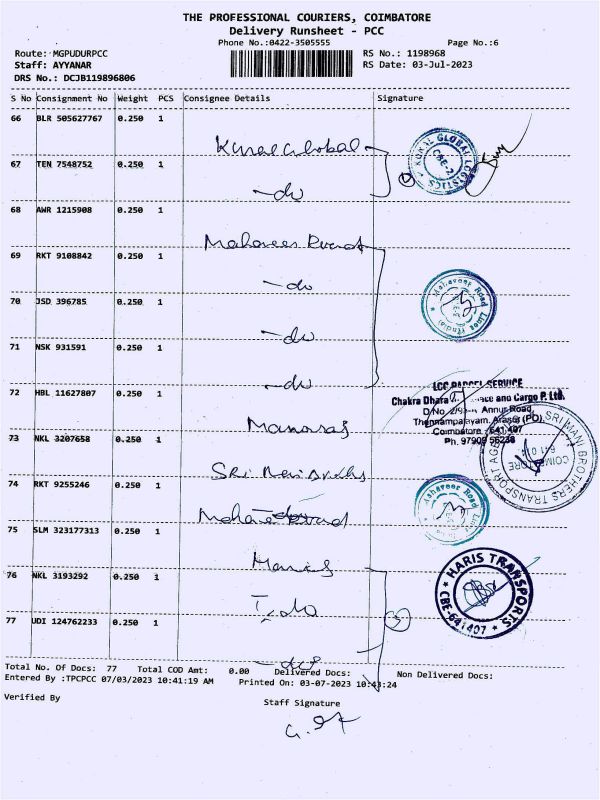 THE PROFESSIONAL COURIERS, COIMBATORE
Delivery Runsheet - PCC
Phone No.:0422-3505555 Page No.:6
Route: MGPUDURPCC RS No.: 1198968
Staff: AYYANAR RS Date: 03-Jul-2023
DRS No.: DCJB119896806
S No Consignment No Weight PCS Consignee Details Signature
66 BLR 505627767 0.250 1
Kural Global
KURAL GLOBAL LOGISTICS CBE-2
67 TEN 7548752 0.250 1
-do
68 AWR 1215908 0.250 1
Mahaveer
69 RKT 9108842 0.250 1
-do
70 JSD 396785 0.250 1
-do
Mahaveer Road Lines (India)
71 NSK 931591 0.250 1
-do
72 HBL 11627807 0.250 1
LCC PARCEL SERVICE
Chakra Dhara and Cargo P. Ltd.
D.No. Annur Road,
Thennampalayam, Arasur (PO),
Coimbatore - 641 407
Ph. 97909 56238
73 NKL 3207658 0.250 1
Sri Mani
SRI MANI BROTHERS TRANSPORT AGENCY COIMBATORE
74 RKT 9255246 0.250 1
Mahaveer Road
75 SLM 323177313 0.250 1
Haris
76 NKL 3193292 0.250 1
HARIS TRANSPORTS CBE-641407
77 UDI 124762233 0.250 1
-do
3
Total No. Of Docs: 77 Total COD Amt: 0.00 Delivered Docs: Non Delivered Docs:
Entered By :TPCPCC 07/03/2023 10:41:19 AM Printed On: 03-07-2023 10:43:24
Verified By Staff Signature